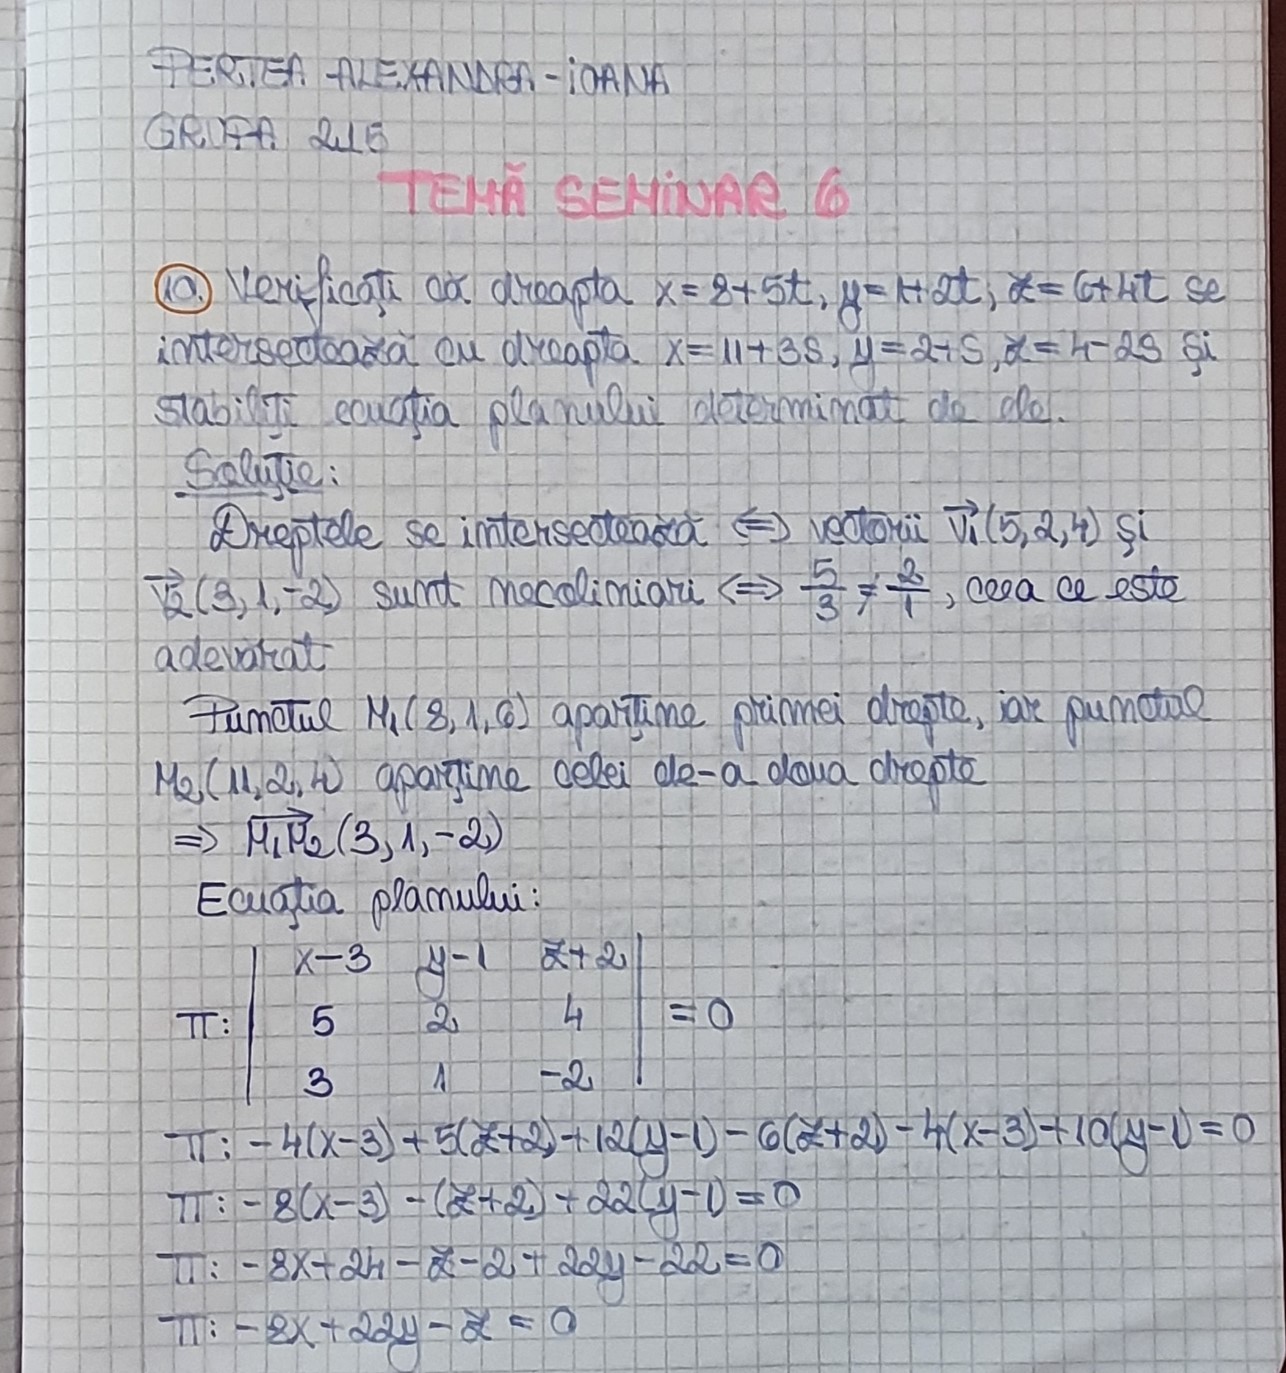 PERTEA ALEXANDRA-IOANA
GRUPA 215
TEMĂ SEMINAR 6
10. Verificați că dreapta x=8+5t, y=1+2t, z=6+4t se
intersectează cu dreapta x=11+3s, y=2+s, z=4-2s și
stabiliți ecuația planului determinat de ele.
Soluție:
Dreptele se intersectează ⇔ vectorii v₁⃗(5,2,4) și
v₂⃗(3,1,-2) sunt necoliniari ⇔ 5/3 ≠ 2/1, ceea ce este
adevărat
Punctul M₁(8,1,6) aparține primei drepte, iar punctul
M₂(11,2,4) aparține celei de-a doua drepte
=> M₁M₂⃗(3,1,-2)
Ecuația planului:
| x-3 y-1 z+2 |
π: | 5 2 4 | = 0
| 3 1 -2 |
π: -4(x-3)+5(z+2)+12(y-1)-6(z+2)-4(x-3)+10(y-1)=0
π: -8(x-3)-(z+2)+22(y-1)=0
π: -8x+24-z-2+22y-22=0
π: -8x+22y-z=0